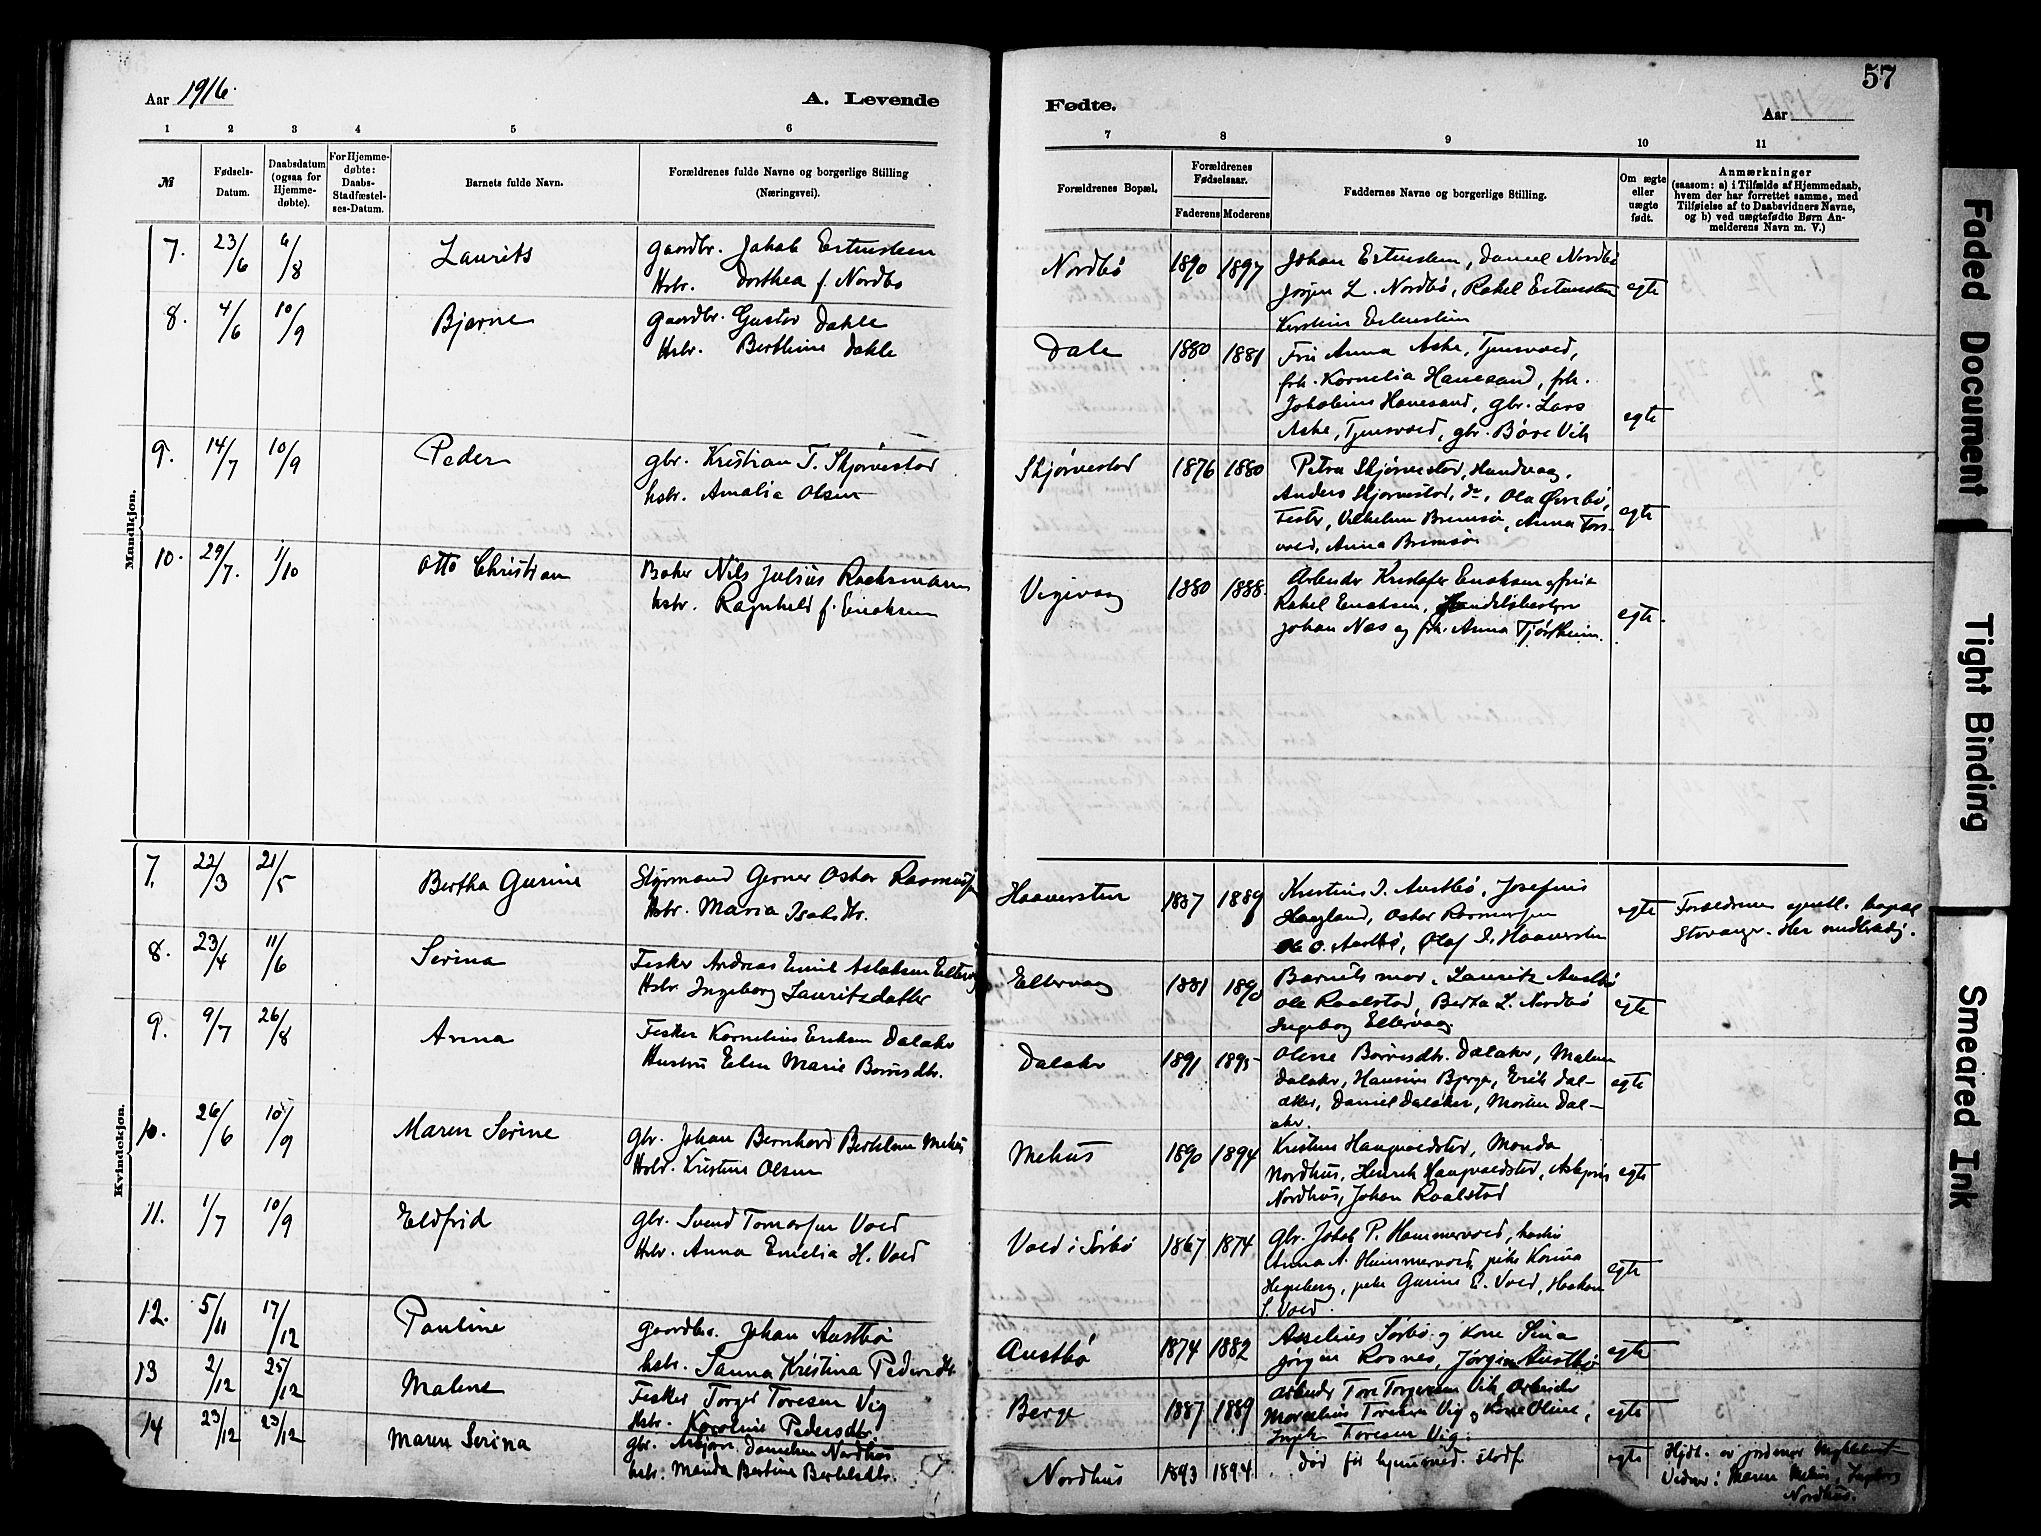 57
Aar 1916.
A. Levende
Fødte.
Aar
1 2 3 4 5 6 7 8 9 10 11
№
Fødsels-
Datum.
Daabsdatum
(ogsaa for
Hjemme-
døbte).
For Hjemme-
døbte:
Daabs-
Stadfæstel-
ses-Datum.
Barnets fulde Navn.
Forældrenes fulde Navne og borgerlige Stilling
(Næringsvei).
Forældrenes Bopæl.
Forældrenes
Fødselsaar.
Faderens Moderens
Faddernes Navne og borgerlige Stilling.
Om ægte
eller
uægte
født.
Anmærkninger
(saasom: a) i Tilfælde af Hjemmedaab,
hvem der har forrettet samme, med
Tilføielse af to Daabsvidners Navne,
og b) ved uægtefødte Børn An-
melderens Navn m. V.)
Mandkjøn.
7. 23/6 6/8 Laurits
Gaardbr. Jakob Estensteen
Hstr. Dorthea f. Nordbø
Nordbø 1890 1897
Johan Estensteen, Daniel Nordbø
Jørgen L. Nordbø, Rakel Estensteen
Estensteen
egte
8. 4/6 10/9 Bjarne
Gaardbr. Gustav Dahle
Hstr. Berthine Dahle
Dale 1880 1881
Fru Anna Aske, Tjensvold,
frk. Kornelia Hanesand, frk.
Hanesand, gbr. Lars
Aske, Tjensvold, gbr. Børe Vik
egte
9. 14/7 10/9 Peder
gbr. Kristian T. Skjørvestad
hstr. Amalia Olsen
Skjørvestad 1876 1880
Petra Skjørvestad, Hundvaag,
Anders Skjørvestad, do, Ola Øvrebø,
Fisker, Vilhelm Bremsø, Anna Tors-
vold, Anna Bremsø
egte
10. 29/7. 1/10 Otto Christian
Baker Nils Julius
hstr. Ragnhild f. Eriksen
Vigevaag 1880 1888.
Arbeider Kristofer Eriksen og frue
Rakel Eriksen, Handelsbestyrer
Johan Næs og frk. Anna Tjørsheim.
egte.
Kvindekjøn.
7. 22/3 21/5 Bertha Gurine
Styrmand Gerner Oskar Rasmussen
Hstr. Maria Isaksdtr.
Haaversten 1887 1889
Kristine I. Austbø, Josefine
Haagland, Oskar Rasmussen
Ole O. Austbø, Olaf I. Haaversten
egte
Forældrenes egentl. bopæl
Stavanger. Her midlertidig.
8. 23/4 11/6 Serina
Fisker Andreas Emil Aslaksen Eltervaag
Hstr Ingeborg Lauritsdatter
Eltervaag 1881 1890
Barnets mor, Lauritz Austbø
Ole Raalstad, Berta L. Nordbø
Ingeborg Eltervaag
egte
9. 9/7 26/8 Anna
Fisker Kornelius Eriksen Dalaker
Hustru Elen Marie Børresdtr.
Dalaker 1891 1895
Oline Børresdtr. Dalaker, Malene
Dalaker, Hansine Bjerga, Erik Dal-
aker, Daniel Dalaker, Morten Dal-
aker.
egte
10. 26/6 10/9 Maren Serine
Gbr. Johan Bernhard Bertelsen Mehus
Hstr. Kristine Olsen
Mehus 1890 1894
Kristine Haugvaldstad, Manda
Nordhus, Henrik Haugvaldstad, Asbjørn
Nordhus, Johan Raalstad
egte
11. 1/7 10/9 Eldfrid
Gbr. Svend Tomassen Vold
Hstr. Anna Emelia H. Vold
Vold i Sørbø 1867 1874
Gbr. Jakob P. Hammervold, hustru
Anna A. Hammervold, pike Korina
Hegeberg, pike Gurine E. Vold, Haakon
S. Vold.
egte
12. 5/11 17/12 Pauline
Gaardbr. Johan Austbø
hstr. Sanna Kristina Pedersdtr
Austbø 1874 1882
Asselius Sørbø og kone Sina
Jørgen Rosnes, Jørgen Austbø
egte
13 2/12 25/12 Malene
Fisker Torger Toresen Vig
Hstr. Karoline Pedersdtr.
Berge 1887 1889
Arbeider Tore Torgersen Vik, Arbeider
Marselius Toresen Vig og kone Oline,
Toresen Vig.
egte
14 23/12 23/12 Maren Serina
gbr. Asbjørn Danielsen Nordhus
hstr. Manda Bertine Bertelsdtr.
Nordhus 1893 1894
død før hjemmed. stadf.
egte
Hjdt. av jordmor
Vidner: Maren Mehus, Ingeborg
Nordhus.
Faded Document
Tight Binding
Smeared Ink